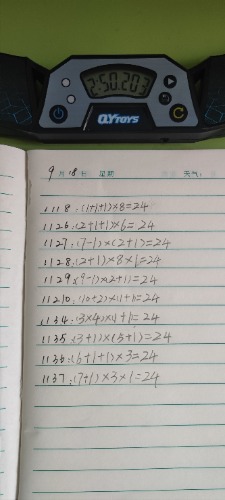 2:50.203
QYTOYS
9月18日 星期 天气:
1118:(1+1+1)×8=24
1126:(2+1+1)×6=24
1127:(7-1)×(2+1)=24
1128:(2+1)×8×1=24
1129:(9-1)×(2+1)=24
11210:(10+2)×(1+1)=24
1134:(3×4)×(1+1)=24
1135:(3+1)×(5+1)=24
1136:(6+1+1)×3=24
1137:(7+1)×3×1=24